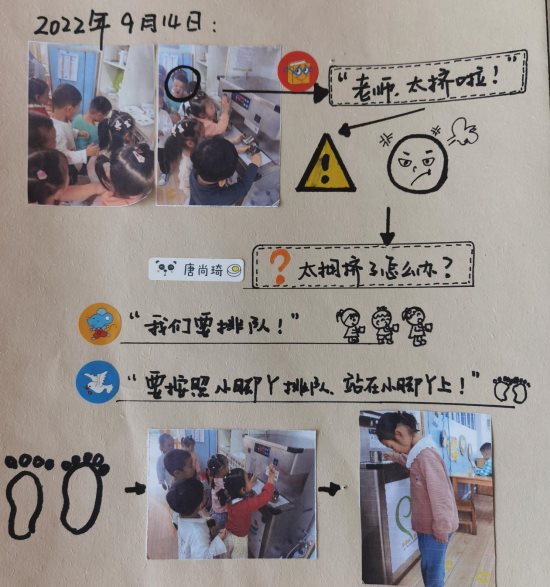 2022年9月14日：
“老师，太挤啦！”
唐尚琦
？太拥挤了怎么办？
“我们要排队！”
“要按照小脚丫排队，站在小脚丫上！”